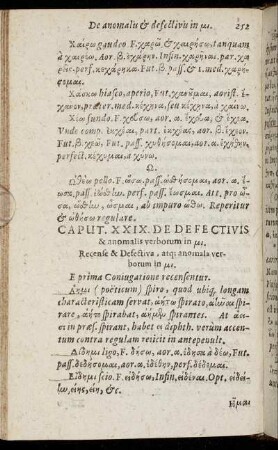 De anomalis & defectivis in μι. 252
Χαίρω gaudeo F. χαρῶ, & χαιρήσω, tanquam
à χαιρέω, Aor. β. ἐχάρην, Infin. χαρῆναι, par. χα
ρεὶς, perf. κεχάρηκα. Fut. β. pass. & 1. med. χαρήσομαι.
Χάσκω hiasco, aperio, Fut. χανοῦμαι, aorist.
Χέω fundo. F. χεύσω, aor. α. ἔχευσα, & ἔχεα,
Vnde comp. ἐκχέαι, part. ἐκχέας, aor. β. ἔχεον,
perfect. κέχυμαι, à χύνω.
Ω.
Ὠθέω pello. F. ὤσω, pass. ὠσθήσομαι, aor. α. ἔ-
ωσα, pass. perf. pass. ἔωσμαι, Att. pro ὦ
σα, ὤσθην, ὦσμαι, ab impuro ὤθω. Reperitur
& ὠθήσω regulare.
CAPUT. XXIX. DE DEFECTIVIS
& anomalis verborum in μι.
Recense & Defectiva, atq; anomala ver-
borum in μι.
E prima Coniugatione recensentur.
Ἄημι (poëticum) spiro, quod ubiq; longam
characteristicam servat, ἄητον spirato, spi-
rate, ἄητο spirabat, ἀήμενοι spirantes. At ἄει-
σι in præs. spirant, habet ει diphth. verùm accen-
tum contra regulam reiicit in antepenult.
Δίδημι ligo, F. δήσω, aor. α. ἔδησα à δέω, Fut.
pass. δεθήσομαι, aor. α. ἐδέθην, perf. δέδεμαι.
Εἴδημι scio. F. εἰδήσω, Infin. εἰδέναι. Opt. εἰδεί-
ην, είης, είη, &c.